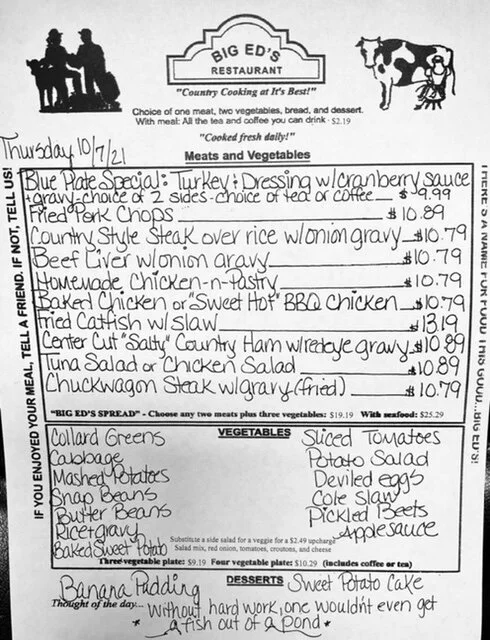 BIG ED'S
RESTAURANT
"Country Cooking at It's Best!"
Choice of one meat, two vegetables, bread, and dessert.
With meal: All the tea and coffee you can drink - $2.19
"Cooked fresh daily!"
Thursday 10/7/21
Meats and Vegetables
IF YOU ENJOYED YOUR MEAL, TELL A FRIEND. IF NOT, TELL US!
Blue Plate Special: Turkey + Dressing w/cranberry sauce
+gravy-choice of 2 sides-choice of tea or coffee $9.99
Fried Pork Chops $10.89
Country Style Steak over rice w/onion gravy $10.79
Beef Liver w/onion gravy $10.79
Homemade Chicken-n-Pastry $10.79
Baked Chicken or "Sweet Hot" BBQ Chicken $10.79
Fried Catfish w/slaw $13.19
Center Cut "Salty" Country Ham w/redeye gravy $10.89
Tuna Salad or Chicken Salad $10.89
Chuckwagon Steak w/gravy (fried) $10.79
THERE'S A NAME FOR FOOD THIS GOOD...BIG ED'S!
"BIG ED'S SPREAD" - Choose any two meats plus three vegetables: $19.19 With seafood: $25.29
VEGETABLES
Collard Greens
Cabbage
Mashed Potatoes
Snap Beans
Butter Beans
Rice+gravy
Baked Sweet Potato
Sliced Tomatoes
Potato Salad
Deviled eggs
Cole Slaw
Pickled Beets
Applesauce
Substitute a side salad for a veggie for a $2.49 upcharge
Salad mix, red onion, tomatoes, croutons, and cheese
Three-vegetable plate: $9.19 Four vegetable plate: $10.29 (includes coffee or tea)
DESSERTS
Banana Pudding Sweet Potato Cake
Thought of the day... Without hard work, one wouldn't even get
* a fish out of a pond *